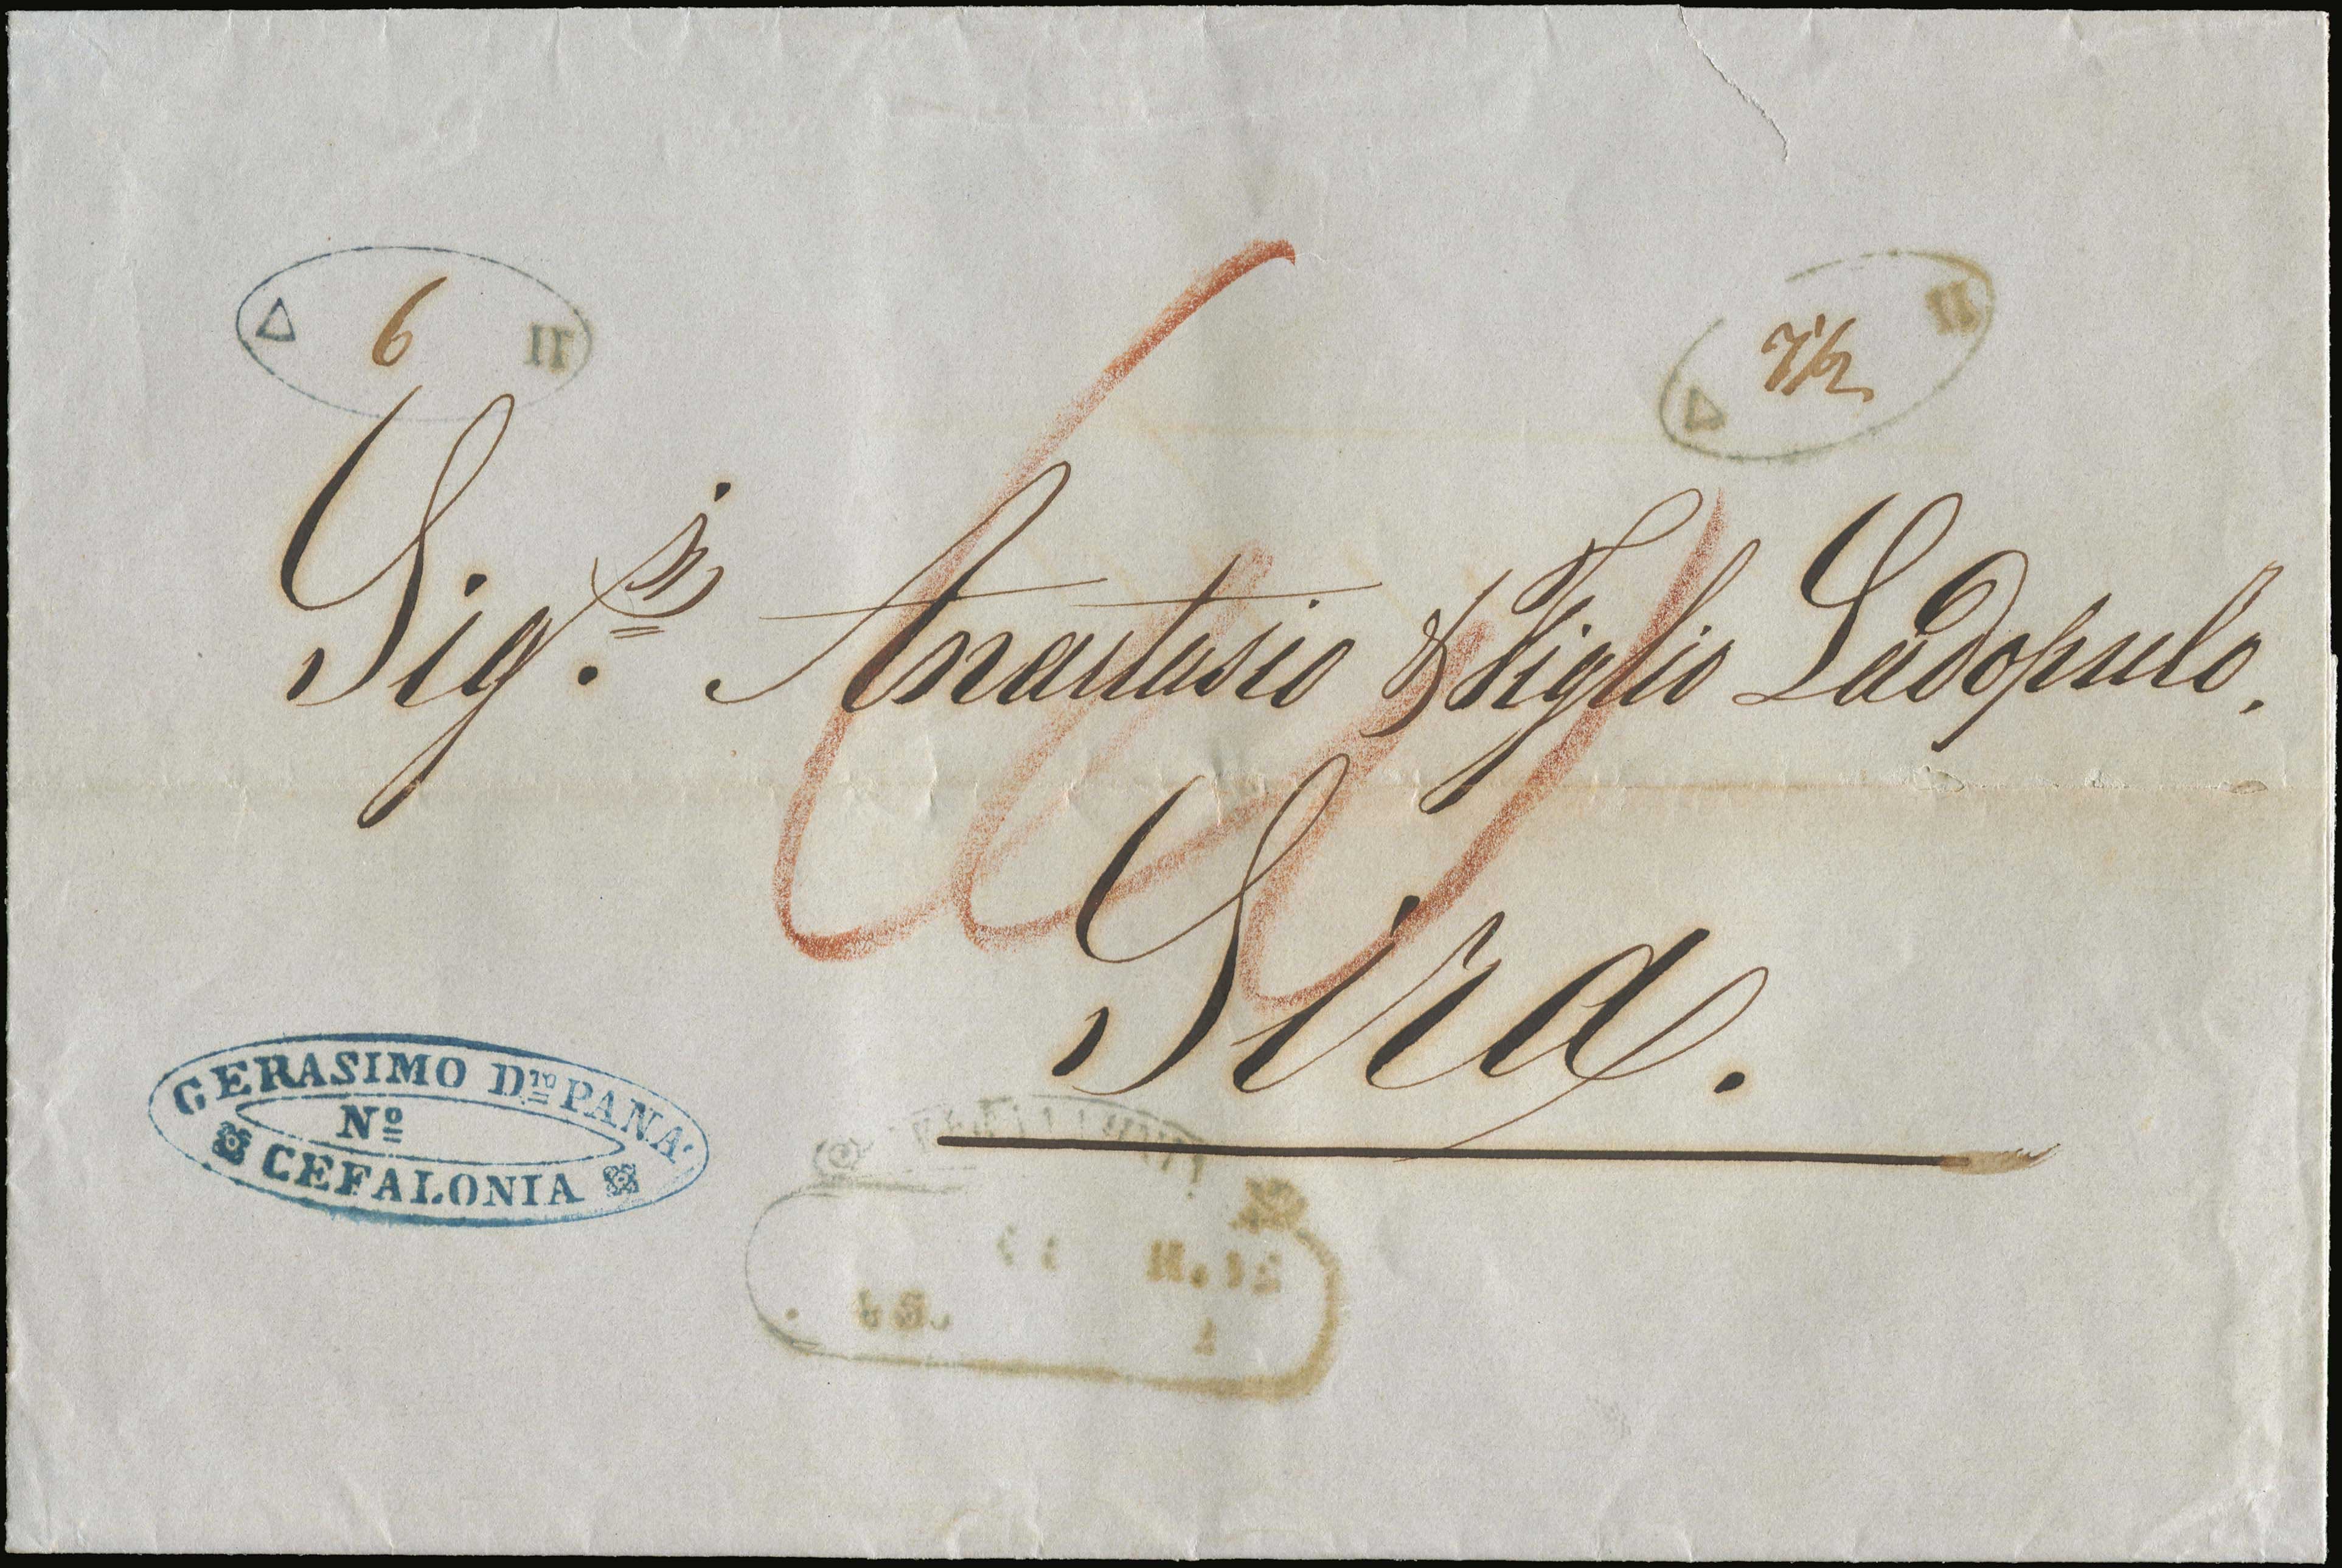 Δ 6 Π
Δ 7½ Π
Sig.ri Anastasio & Figlio Ladopulo.
Sira.
GERASIMO Dm PANA'
Nº
CEFALONIA